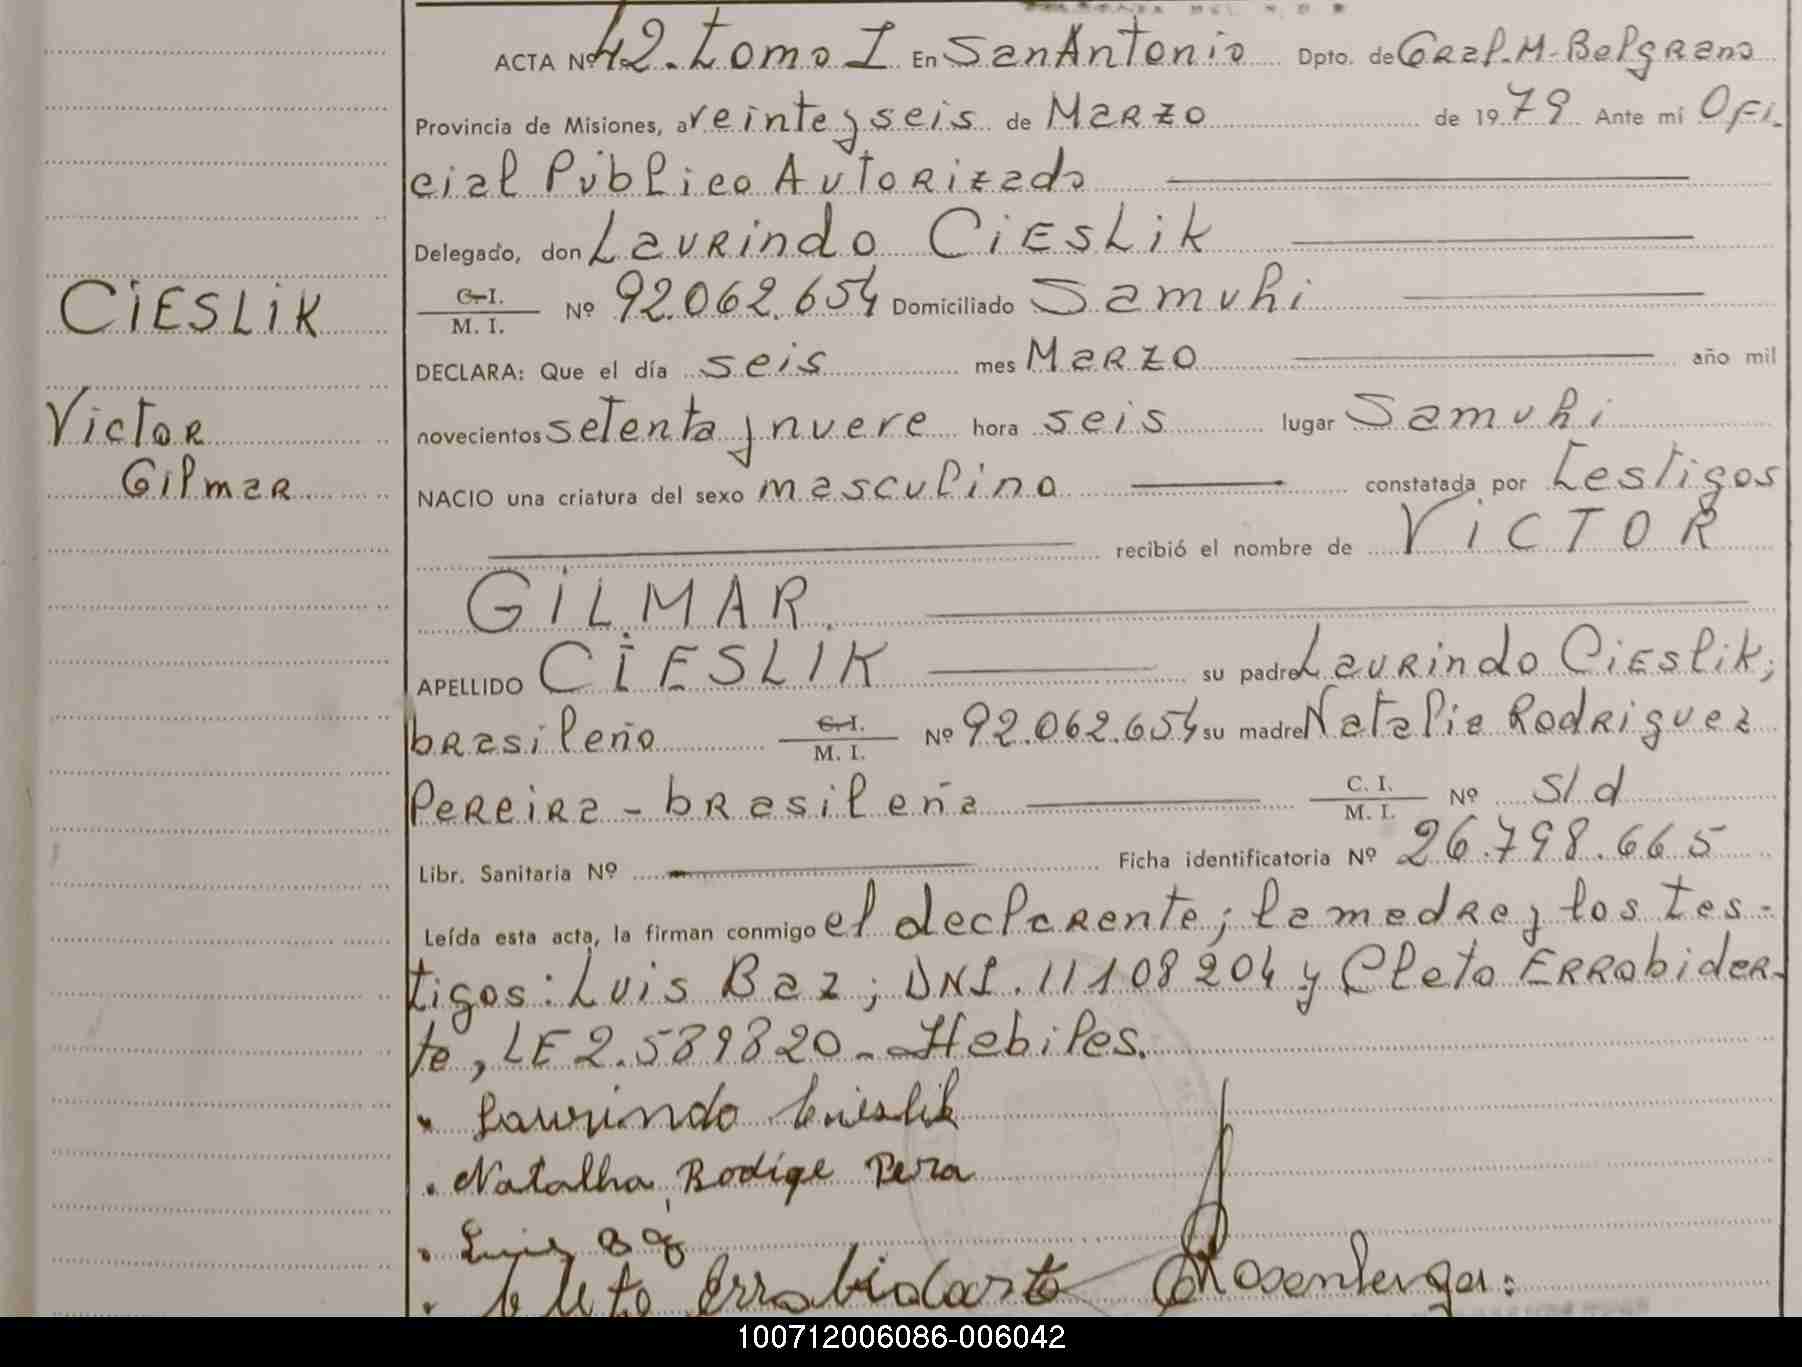 ACTA Nº 42. Tomo I En San Antonio Dpto. de Gral. M. Belgrano
Provincia de Misiones, a veinte y seis de Marzo de 1979 Ante mí Ofi-
cial Público Autorizado
Delegado, don Laurindo CiESLik
CiESLiK
C.I. / M. I. Nº 92.062.654 Domiciliado Samuhi
DECLARA: Que el día seis mes Marzo año mil
Victor
novecientos setenta y nueve hora seis lugar Samuhi
Gilmar
NACIO una criatura del sexo masculino constatada por Testigos
recibió el nombre de ViCTOR
GiLMAR.
APELLIDO CiESLIK su padre Laurindo Cieslik;
brasileño C.I. / M. I. Nº 92.062.654 su madre Natalia Rodriguez
Pereira - brasileña C. I. / M. I. Nº s/d
Libr. Sanitaria Nº Ficha identificatoria Nº 26.798.665
Leída esta acta, la firman conmigo el declarante; la madre y los tes-
tigos: Luis Baz; DNI. 11108204 y Cleto Errobidar-
te, LE 2.589820 - Hebiles.
Laurindo Cieslik
Natalha Rodige Pera
Luis Baz
Cleto Errobidarte Rosenberger
100712006086-006042